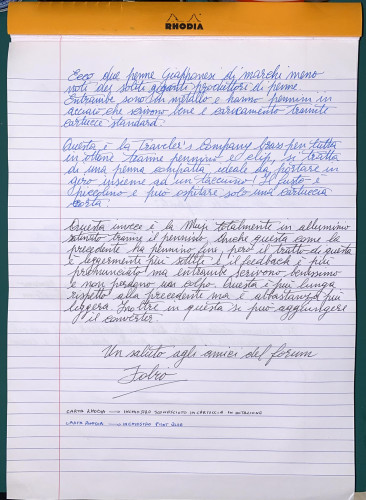 RHODIA
Ecco due penne Giapponesi di marchi meno
noti dei soliti giganti produttori di penne.
Entrambe sono in metallo e hanno pennini in
acciaio che scrivono bene e caricamento tramite
cartucce standard.
Questa è la Traveler's Company brass pen tutta
in ottone tranne pennino e clip, si tratta
di una penna compatta ideale da portare in
giro insieme ad un taccuino! Il fusto è
piccolino e può ospitare solo una cartuccia
corta.
Questa invece è la Muji totalmente in alluminio
satinato tranne il pennino, anche questa come la
precedente ha pennino fine, però il tratto di questa
è leggermente più sottile e il feedback è più
pronunciato ma entrambe scrivono benissimo
e non perdono un colpo. Questa è più lunga
rispetto alla precedente ma è abbastanza più
leggera. Inoltre in questa si può aggiungere
il converter.
Un saluto agli amici del forum
Fabro
CARTA RHODIA INCHIOSTRO SCONOSCIUTO IN CARTUCCIA IN DOTAZIONE
CARTA RHODIA INCHIOSTRO BLUE